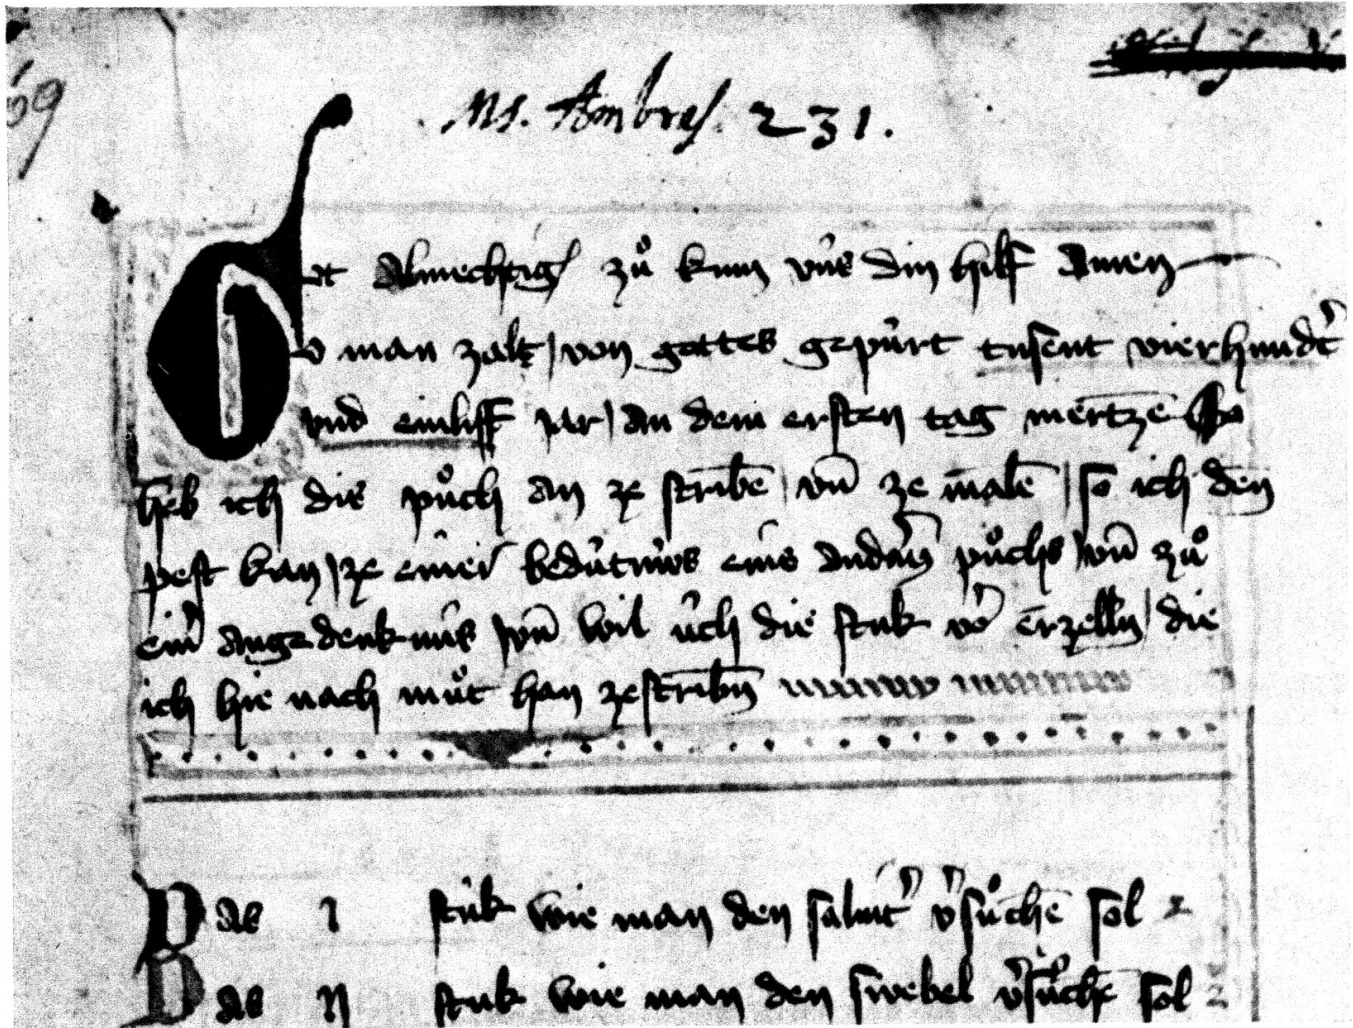 69
Ms. Ambras. 231.
Got Almechtig zů kum vns din hilff Amen
Do man zalt von gottes gepůrt tusent vierhundt
vnd einliff jar an dem ersten tag mertze do
heb ich die půch an ze scribe vn̄ ze male so ich den
pest kan ze einer bedůtnus eins andern půchs vn̄ zů
eim angedenknus vn̄ wil ůch die stuk vo erzelln die
ich hie nach můt han zescribn
Das 1 stuk wie man den salniter vsůche sol 2
Das 11 stuk wie man den swebel vsůche sol 2